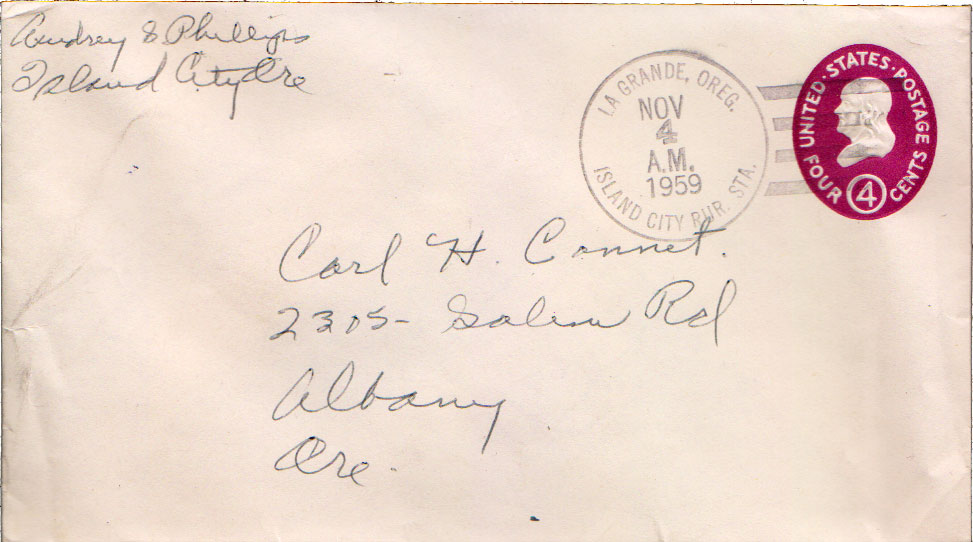 Audrey E Phillips
Island City Ore
LA GRANDE, OREG.
NOV
4
A.M.
1959
ISLAND CITY RUR. STA.
UNITED·STATES·POSTAGE
FOUR 4 CENTS
Carl H. Connet.
2305- Salem Rd
Albany
Ore.